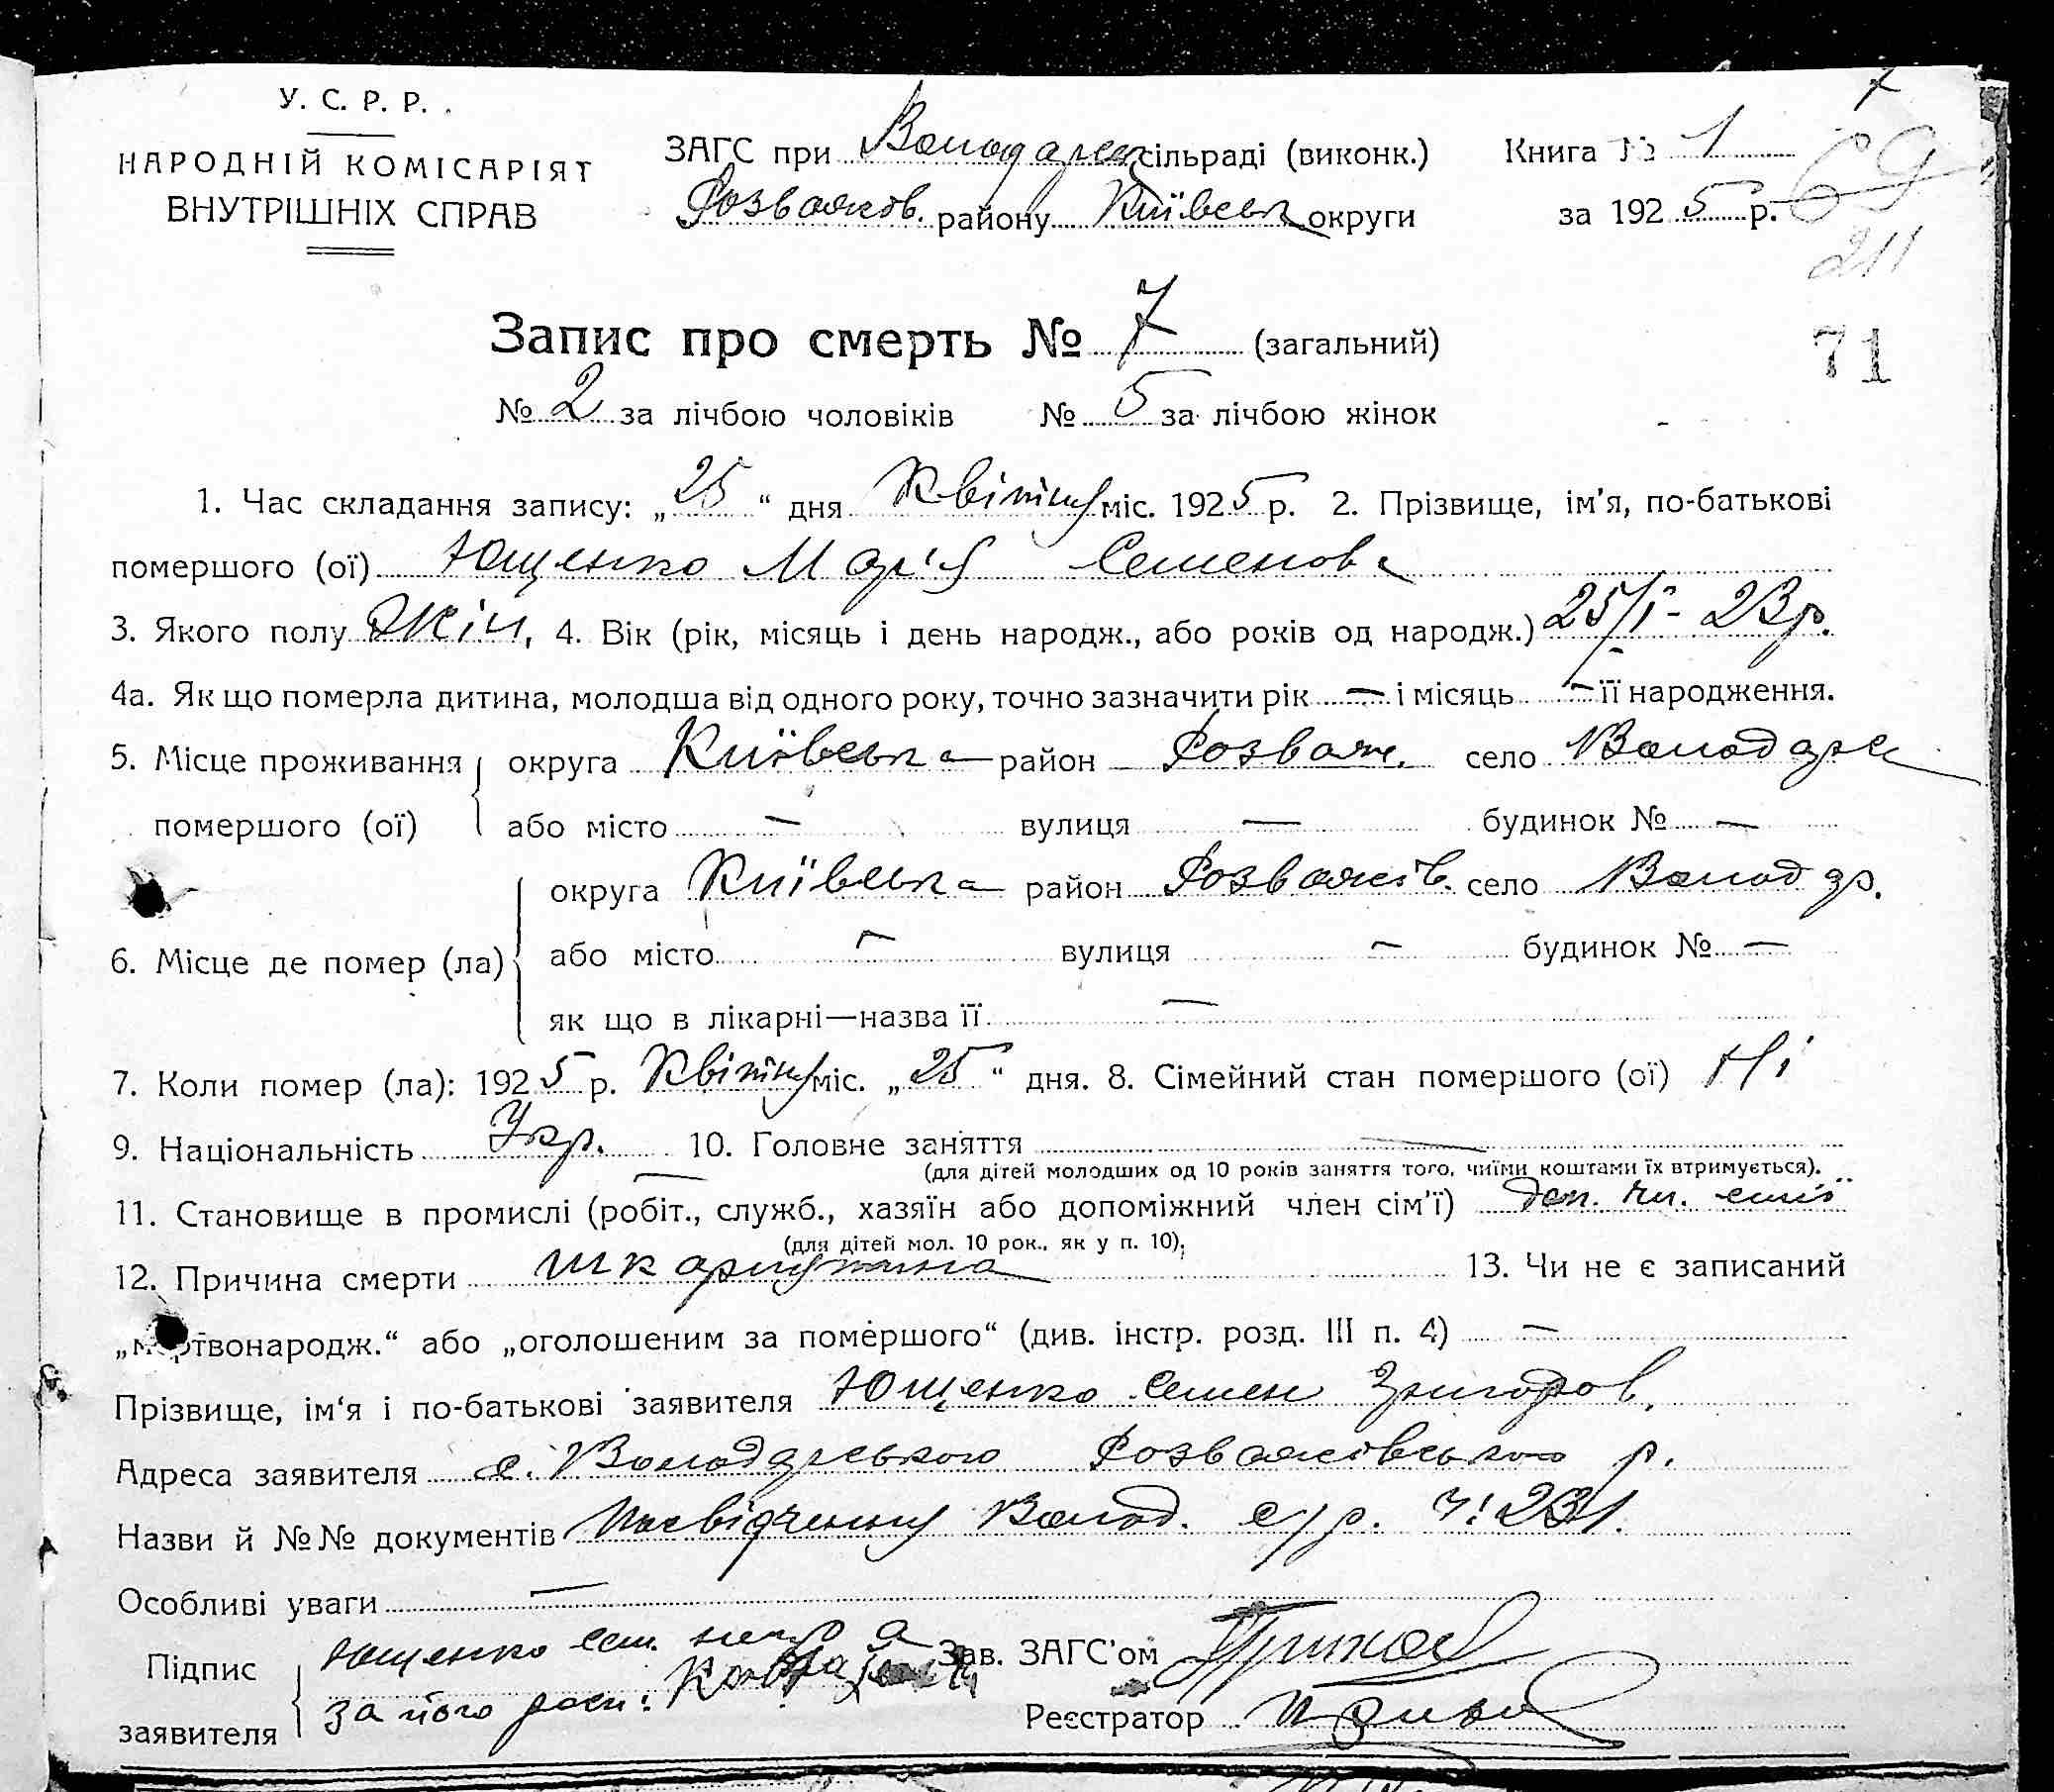 У. С. Р. Р.
НАРОДНІЙ КОМІСАРІЯТ
ВНУТРІШНІХ СПРАВ
ЗАГС при Володарськ сільраді (виконк.)
Розважів. району Київськ округи
Книга № 1
за 1925 р.
7
69
211
71
Запис про смерть № 7 (загальний)
№ 2 за лічбою чоловіків № 5 за лічбою жінок
1. Час складання запису: „25“ дня Квітня міс. 1925 р. 2. Прізвище, ім'я, по-батькові
помершого (ої) Ющенко Марія Семенова
3. Якого полу Жін, 4. Вік (рік, місяць і день народж., або років од народж.) 25/I - 23 р.
4а. Як що померла дитина, молодша від одного року, точно зазначити рік — і місяць — її народження.
5. Місце проживання помершого (ої) округа Київська район Розваж. село Володарк
або місто — вулиця — будинок № —
6. Місце де помер (ла) округа Київська район Розважів. село Волод др.
або місто — вулиця — будинок № —
як що в лікарні—назва її —
7. Коли помер (ла): 1925 р. Квітня міс. „25“ дня. 8. Сімейний стан помершого (ої) Ні
9. Національність Укр. 10. Головне заняття —
(для дітей молодших од 10 років заняття того, чиїми коштами їх втримується).
11. Становище в промислі (робіт., служб., хазяїн або допоміжний член сім'ї) доп. чл. сімї
(для дітей мол. 10 рок., як у п. 10).
12. Причина смерти шкарлятина 13. Чи не є записаний
„мертвонародж.“ або „оголошеним за помершого“ (див. інстр. розд. III п. 4) —
Прізвище, ім'я і по-батькові заявителя Ющенко Семен Григоров.
Адреса заявителя с. Володарського Розважівського р.
Назви й №№ документів Посвідчення Волод. с/р. Ч: 231.
Особливі уваги —
Підпис заявителя Ющенко Сем. негр а
за його росп:
Зав. ЗАГС'ом
Реєстратор